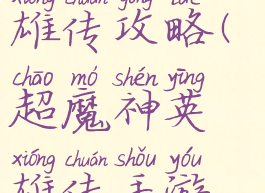 xióng chuán gōng lüè
雄传攻略(
chāo mó shén yīng
超魔神英
xióng chuán shǒu yóu
雄传手游